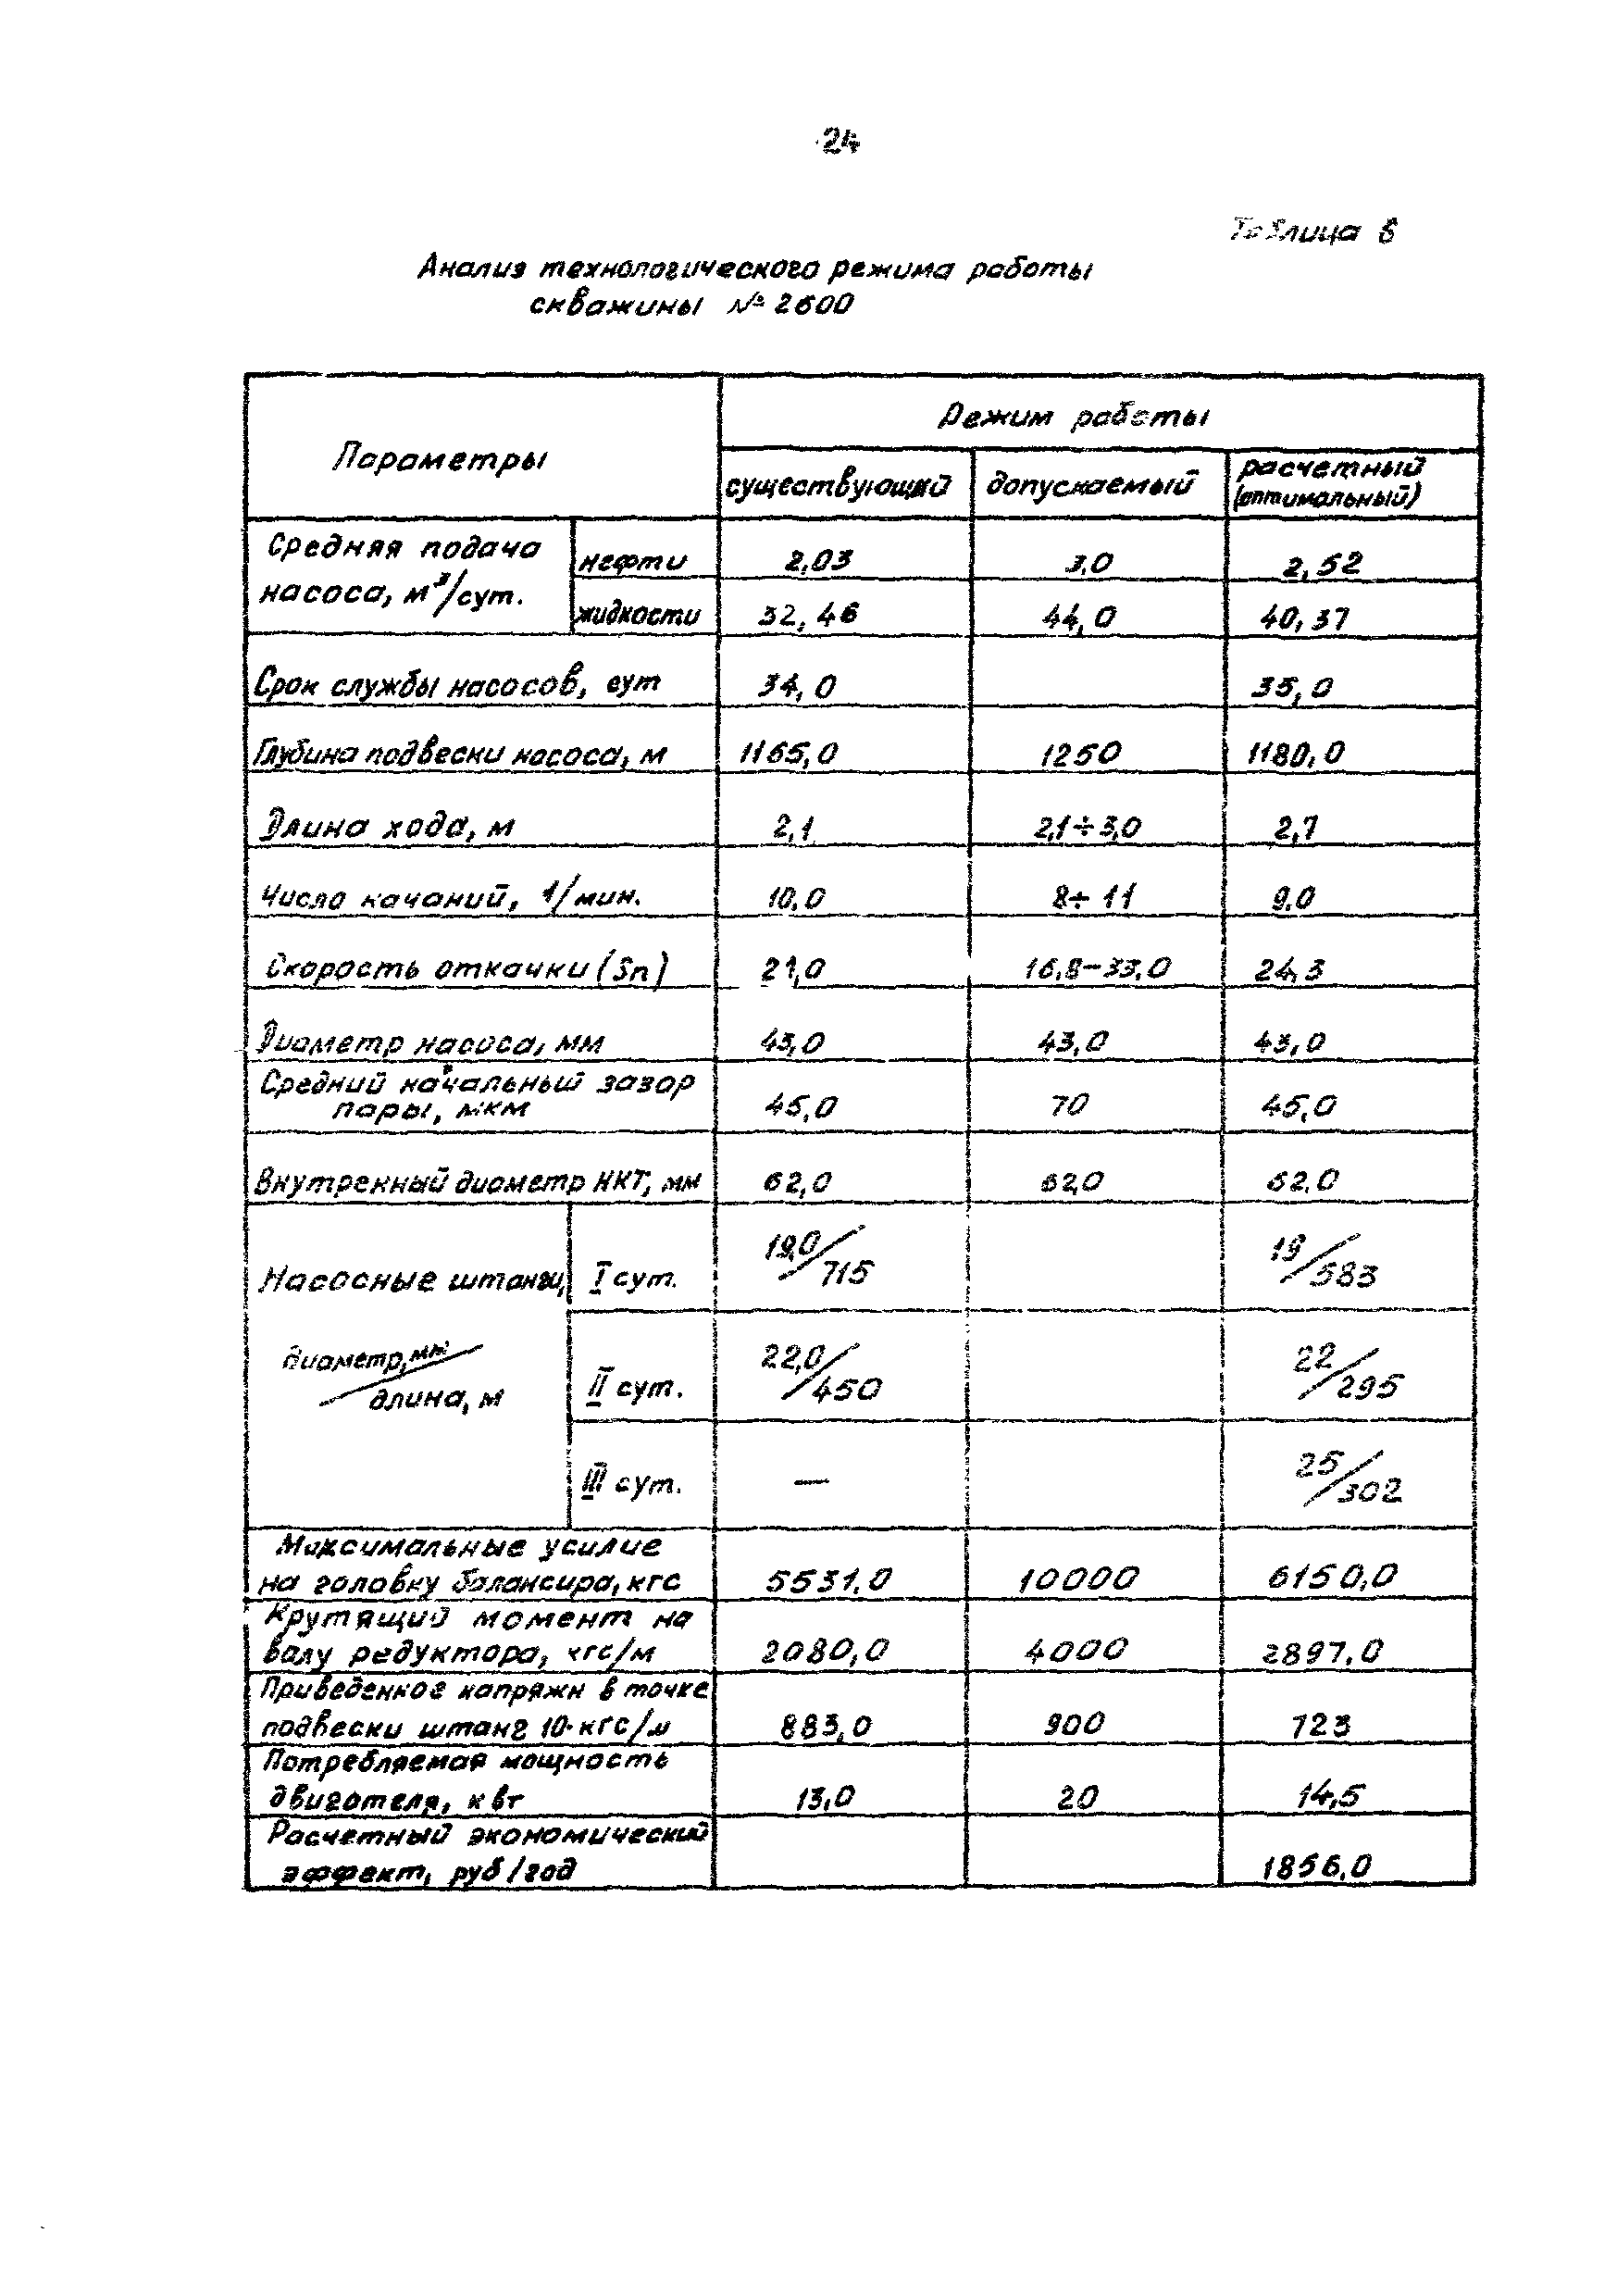 24
Таблица 6
Анализ технологического режима работы
скважины № 2600
Параметры
Режим работы
существующий допускаемый расчетный
(оптимальный)
Средняя подача
насоса, м³/сут.
нефти 2,03 3,0 2,52
жидкости 32,46 44,0 40,37
Срок службы насосов, сут 34,0 35,0
Глубина подвески насоса, м 1165,0 1250 1180,0
Длина хода, м 2,1 2,1÷3,0 2,7
Число качаний, 1/мин. 10,0 8÷11 9.0
Скорость откачки (Sn) 21,0 16,8-33,0 24,3
Диаметр насоса, мм 43,0 43,0 43,0
Средний начальный зазор
пары, мкм 45,0 70 45,0
Внутренный диаметр НКТ, мм 62,0 62,0 62.0
Насосные штанги, I сут. 19,0/715 19/583
диаметр, мм/длина, м II сут. 22,0/450 22/295
III сут. — 25/302
Максимальные усилие
на головку балансира, кгс 5531,0 10000 6150,0
Крутящий момент на
валу редуктора, кгс/м 2080,0 4000 2897,0
Приведенное напряжн в точке
подвески штанг 10·кгс/м 883,0 900 723
Потребляемая мощность
двигателя, квт 13,0 20 14,5
Расчетный экономический
эффект, руб/год 1856,0